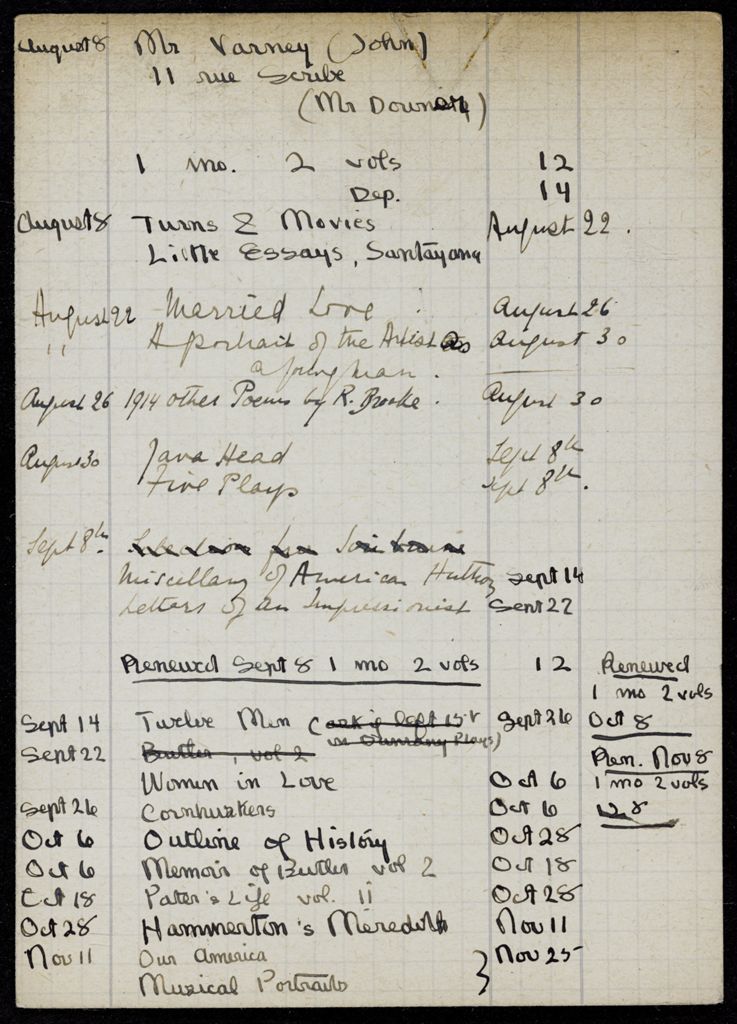 August 8 Mr Varney (John)
11 rue Scribe
(Mr Downer)
1 mo. 2 vols 12
Dep. 14
August 8 Turns & Movies August 22.
Little Essays, Santayana
August 22 Married Love August 26
" A portrait of the Artist as August 30
a young man.
August 26 1914 other Poems by R. Brooke. August 30
August 30 Java Head Sept 8th
Five Plays Sept 8th.
Sept 8th
Miscellany of American Sept 14
Letters of an Impressionist Sept 22
Renewed Sept 8 1 mo 2 vols 12
Renewed
1 mo 2 vols
Oct 8
Ren. Nov 8
1 mo 2 vols
Sept 14 Twelve Men (ask if left 1st Sept 26
in Plays)
Sept 22 Butler, vol 2
Women in Love Oct 6
Sept 26 Cornhuskers Oct 6
Oct 6 Outline of History Oct 28
Oct 6 Memoir of Butler vol 2 Oct 18
Oct 18 Pater's Life vol. II Oct 28
Oct 28 Hammerton's Meredith Nov 11
Nov 11 Our America } Nov 25
Musical Portraits